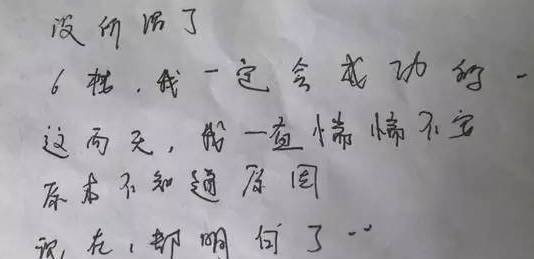 没价值了
6楼,我一定会成功的.
这两天,我一直惴惴不安
原本不知道原因
现在,都明白了..